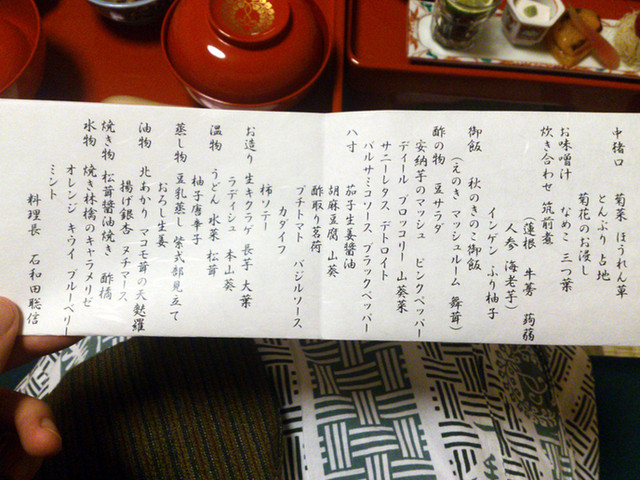 中猪口 菊菜 ほうれん草
とんぶり 占地
菊花のお浸し
お味噌汁 なめこ 三つ葉
炊き合わせ 筑前煮
(蓮根 牛蒡 蒟蒻
人参 海老芋)
インゲン ふり柚子
御飯 秋のきのこ御飯
(えのき マッシュルーム 舞茸)
酢の物 豆サラダ
安納芋のマッシュ ピンクペッパー
ディール ブロッコリー 山葵菜
サニーレタス デトロイト
バルサミコソース ブラックペッパー
八寸 茄子生姜醤油
胡麻豆腐 山葵
酢取り茗荷
プチトマト バジルソース
カダイフ
柿ソテー
お造り 生キクラゲ 長芋 大葉
ラディシュ 本山葵
温物 うどん 水菜 松茸
柚子唐辛子
蒸し物 豆乳蒸し 紫式部見立て
おろし生姜
油物 北あかり マコモ茸の天麩羅
揚げ銀杏 ヌチマース
焼き物 松茸醤油焼き 酢橘
水物 焼き林檎のキャラメリゼ
オレンジ キウイ ブルーベリー
ミント
料理長 石和田聡信